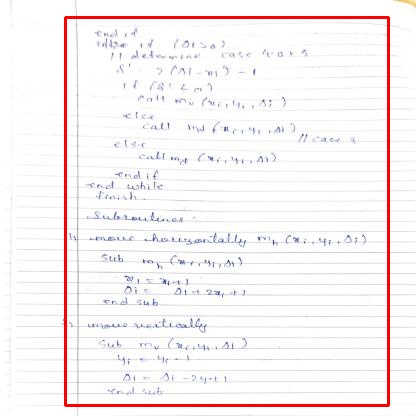 end if
else if (Δi > 0)
// determine case 4 or 5
δ' = 2(Δi - xi) - 1
if (δ' ≤ 0)
call mv (xi, yi, Δi)
else
call md (xi, yi, Δi)
// case 3
else
call md (xi, yi, Δi)
end if
end while
finish.
Subroutines.
1) move horizontally mh (xi, yi, Δi)
sub mh (xi, yi, Δi)
xi = xi + 1
Δi = Δi + 2xi + 1
end sub
move vertically
sub mv (xi, yi, Δi)
yi = yi - 1
Δi = Δi - 2y + 1
end sub